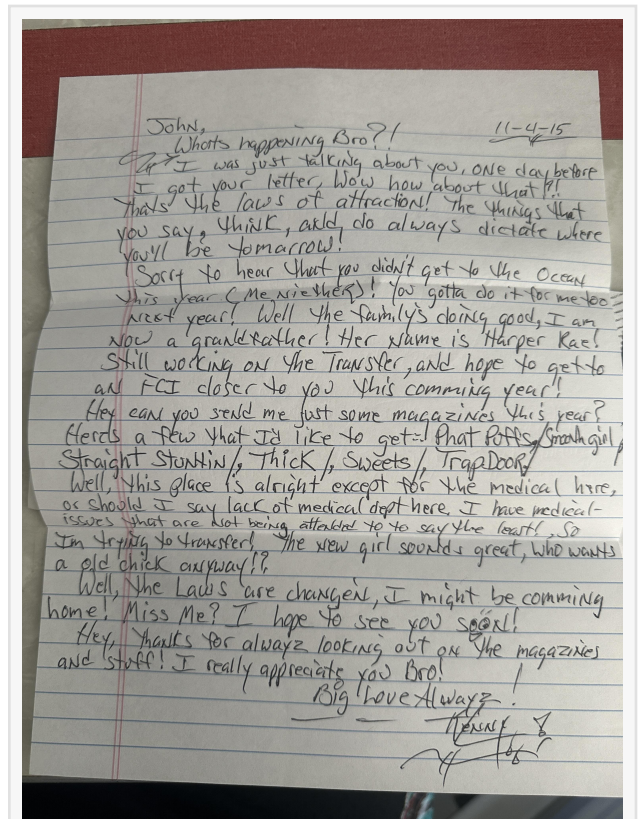 John,
11-4-15
Whats happening Bro?!
I was just talking about you, one day before
I got your letter, Wow how about that!?!
Thats the laws of attraction! The things that
you say, think, and, do always dictate where
you'll be tomarrow!
Sorry to hear that you didn't get to the Ocean
this year (Me Niether)! You gotta do it for me too
next year! Well the family's doing good, I am
now a grandfather! Her name is Harper Rae!
Still working on the Transfer, and hope to get to
an FCI closer to you this comming year!
Hey can you send me just some magazines this year?
Here's a few that I'd like to get: Phat Puffs, Smooth girl,
Straight Stuntin/, Thick/, Sweets/, TrapDoor/
Well, this place is alright except for the medical here,
or should I say lack of medical dept here. I have medical-
issues that are not being attended to to say the least!, So
I'm trying to transfer! The new girl sounds great, who wants
a old chick anyway!?
Well, the Laws are changen, I might be comming
home! Miss Me? I hope to see you soon!
Hey, thanks for alwayz looking out on the magazines
and stuff! I really appreciate you Bro!
Big Love Alwayz!
Kenny